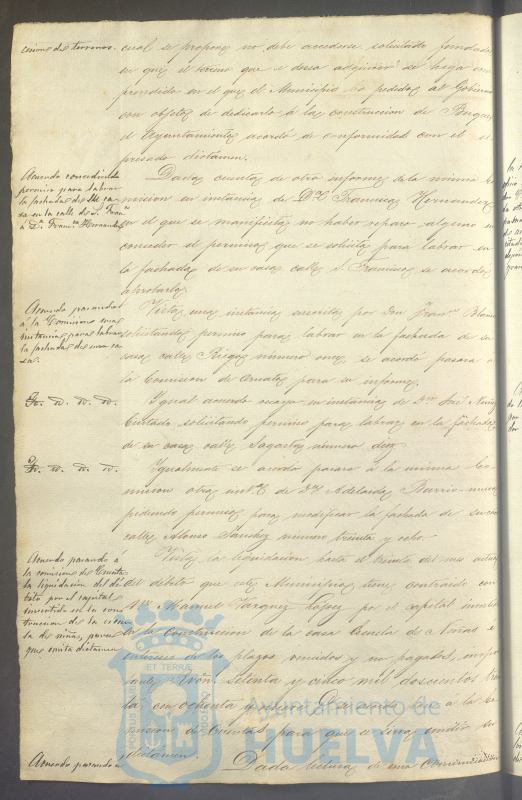 cesion de terrenos.
cual se propone no debe accederse solicitado fundado
en que el terreno que se desea adquirir se haya com
prendido en el que el Municipio ha pedido al Gobierno
con objeto de dedicarlo á la construccion de Parques
el Ayuntamiento acordó de conformidad con el es
presado dictámen.
Acuerdo concediendo
permiso para labrar
la fachada de su ca
sa en la calle de S. Fran.co
á D.ª Fran.ca Hernandez
Dada cuenta de otro informe de la misma Co
mision en instancia de D.ª Francisca Hernandez
en el que se manifiesta no haber reparo alguno en
conceder el permiso que se solicita para labrar en
la fachada de su casa calle S. Francisco se acordó
aprobarlo.
Acuerdo pasando
á la Comision una
instancia para labrar
la fachada de una ca
sa.
Vista una instancia suscrita por Don Fran.co Blanco
solicitando permiso para labrar en la fachada de su
casa calle Riego número once, se acordó pasara á
la Comision de Ornato para su informe.
Id. Id. Id. Id.
Igual acuerdo recayó en instancia de D.n José Nuñez
Curtado solicitando permiso para labrar en la fachada
de su casa calle Sagasta número diez
Id. Id. Id. Id.
Igualmente se acordó pasara á la misma Co
mision otra inst.ª de D.ª Adelaida Barrio-nuevo
pidiendo permiso para modificar la fachada de su casa
calle Alonso Sanchez número treinta y ocho.
Acuerdo pasando á
la comision de Cuentas
la liquidacion del dé
bito por el capital
invertido en la cons
truccion de la escue
la de niñas, para
que emita dictámen
Vista la liquidacion hasta el treinta del mes actual
del débito que este Municipio tiene contraido con
D.n Manuel Vazquez Lopez por el capital invertido
en la Construccion de la casa Escuela de Niñas é
intereses de los plazos vencidos y no pagados, impor
tante Rvón. setenta y cinco mil doscientos
ochenta y
pase á la Co
mision de Cuentas para que se sirva emitir su
dictámen.
Acuerdo pasando á
Dada lectura de una comunicacion
ET TERRÆ
Ayuntamiento de
HUELVA